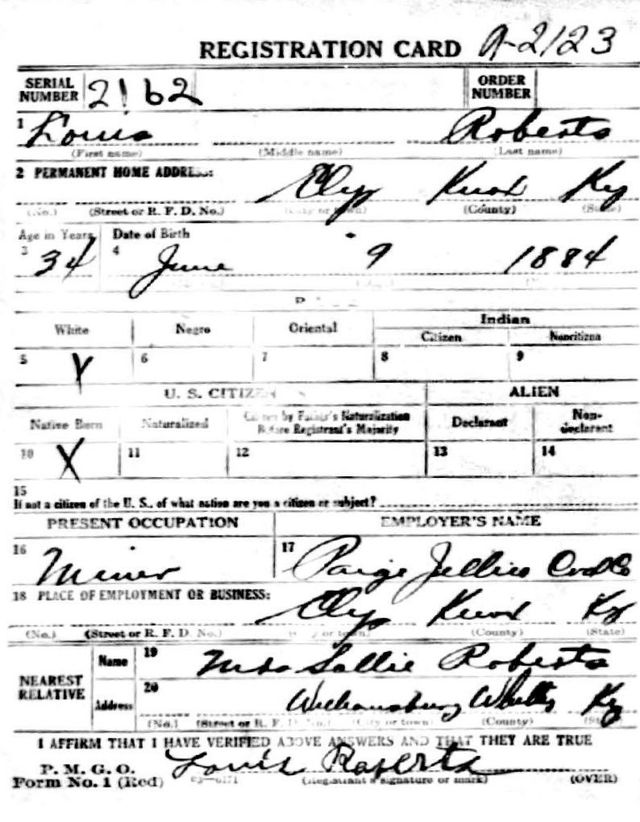 REGISTRATION CARD A-2123
SERIAL NUMBER 2162 ORDER NUMBER
1 Louis Roberts
(First name) (Middle name) (Last name)
2 PERMANENT HOME ADDRESS: Ely Knox Ky
(No.) (Street or R. F. D. No.) (City or town) (County) (State)
Age in Years Date of Birth
3 34 4 June 9 1884
White Negro Oriental Indian
Citizen Noncitizen
5 X 6 7 8 9
U. S. CITIZEN ALIEN
Native Born Naturalized Citizen by Father's Naturalization Before Registrant's Majority Declarant Non-declarant
10 X 11 12 13 14
15
If not a citizen of the U. S., of what nation are you a citizen or subject?
PRESENT OCCUPATION EMPLOYER'S NAME
16 Miner 17 Paige Jellico
18 PLACE OF EMPLOYMENT OR BUSINESS: Ely Knox Ky
(No.) (Street or R. F. D. No.) (City or town) (County) (State)
NEAREST RELATIVE Name 19 Mrs Sallie Roberts
Address 20 Williamsburg Whitley Ky
(No.) (Street or R. F. D. No.) (City or town) (County) (State)
I AFFIRM THAT I HAVE VERIFIED ABOVE ANSWERS AND THAT THEY ARE TRUE
P. M. G. O.
Form No. 1 (Red) Louis Roberts
(Registrant's signature or mark) (OVER)